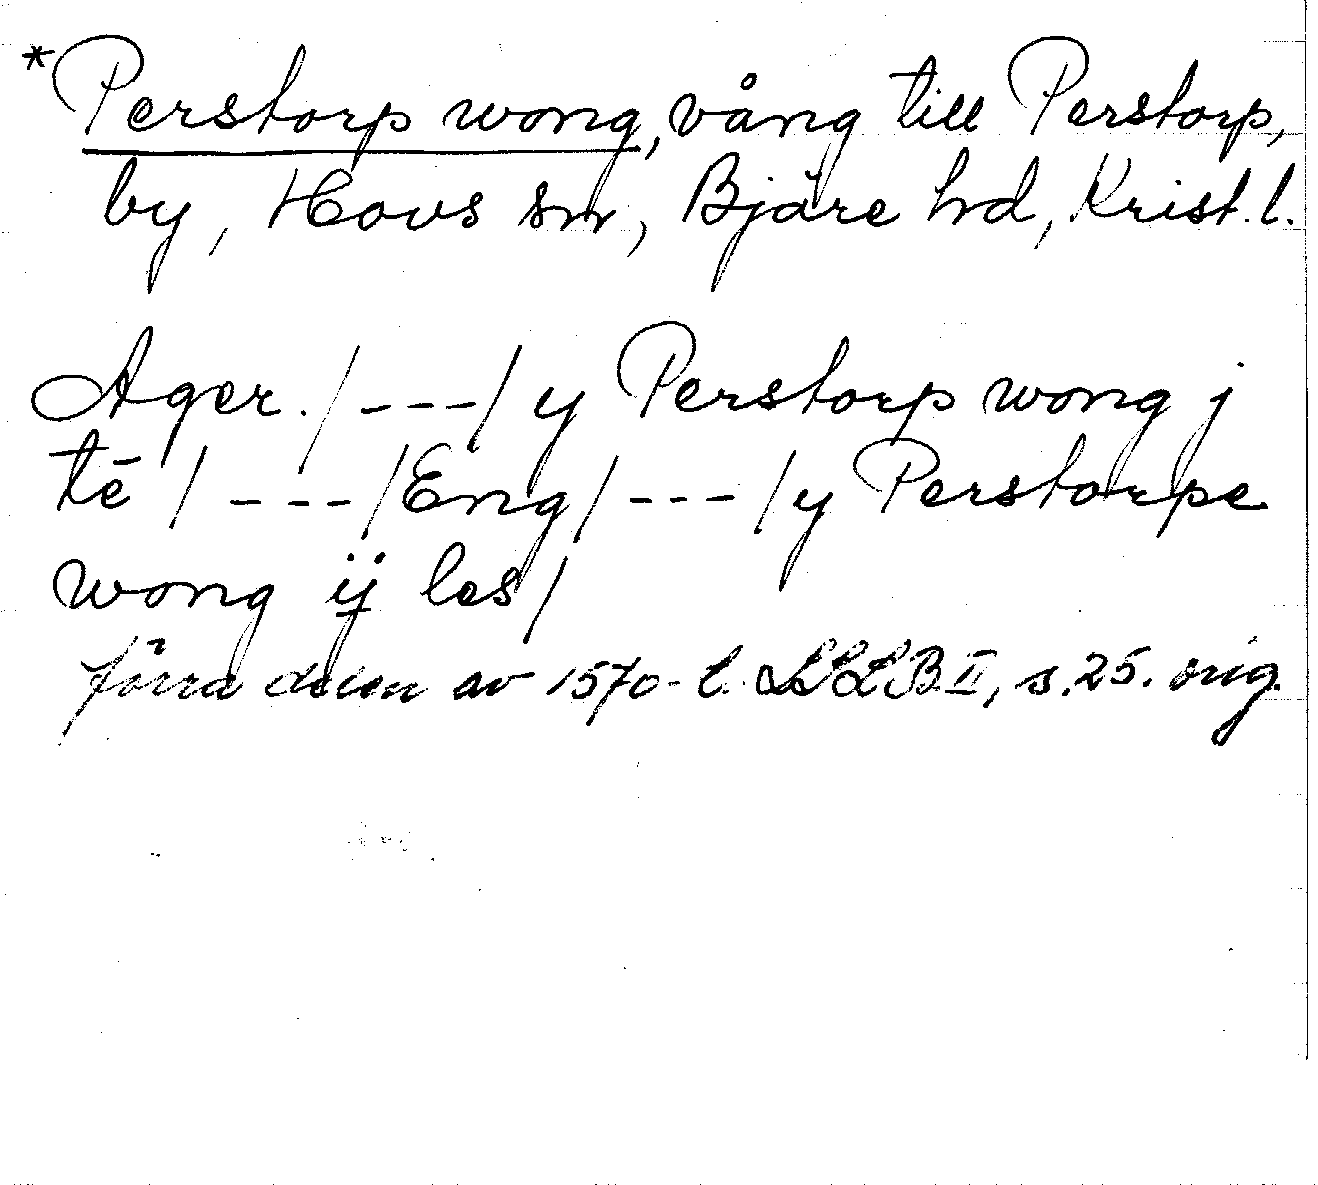 *Perstorp wong, vång till Perstorp,
by, Hovs sn, Bjäre hd, Krist. l.
Ager. / --- / y Perstorp wong j
tē / --- / Eng / --- / y Perstorpe
wong ij les /
förra delen av 1570-t. LLLB II, s. 25. orig.